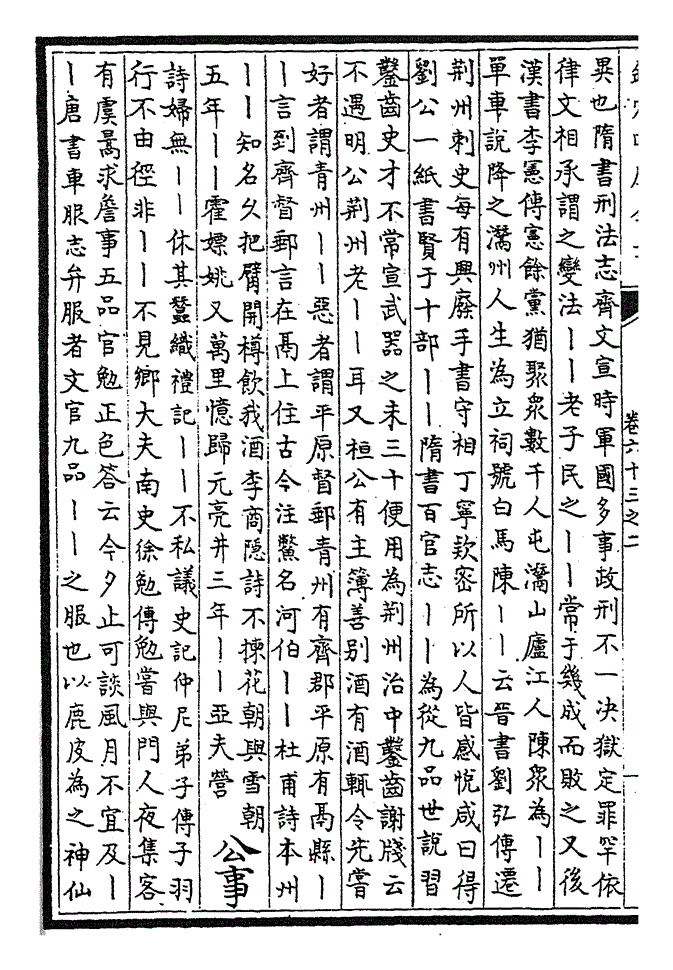 卷六十三之二
異也隋書刑法志齊文宣時軍國多事政刑不一决獄定罪罕依
律文相承謂之變法丨丨老子民之丨丨常于幾成而敗之又後
漢書李憲傳憲餘黨猶聚衆數千人屯灊山廬江人陳衆為丨丨
單車說降之灊州人生為立祠號白馬陳丨丨云晉書劉弘傳遷
荆州刺史每有興廢手書守相丁寧欵密所以人皆感恱咸曰得
劉公一紙書賢于十部丨丨隋書百官志丨丨為從九品世說習
鑿齒史才不常宣武器之未三十便用為荆州治中鑿齒謝牋云
不遇明公荆州老丨丨耳又桓公有主簿善别酒有酒輒令先嘗
好者謂青州丨丨惡者謂平原督郵青州有齊郡平原有鬲縣丨
丨言到齊督郵言在鬲上住古今注鱉名河伯丨丨杜甫詩本州
丨丨知名久把臂開樽飲我酒李商隱詩不揀花朝與雪朝
五年丨丨霍嫖姚又萬里憶歸元亮井三年丨丨亞夫營
公事
詩婦無丨丨休其蠶織禮記丨丨不私議史記仲尼弟子傳子羽
行不由徑非丨丨不見鄉大夫南史徐勉傳勉嘗與門人夜集客
有虞暠求詹事五品官勉正色答云今夕止可談風月不宜及丨
丨唐書車服志弁服者文官九品丨丨之服也以鹿皮為之神仙